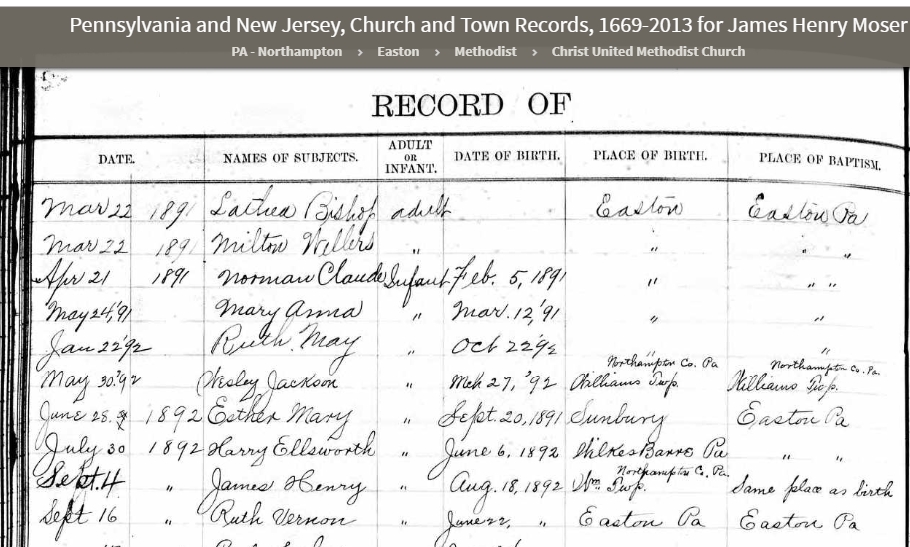 Pennsylvania and New Jersey, Church and Town Records, 1669-2013 for James Henry Moser
PA - Northampton > Easton > Methodist > Christ United Methodist Church
RECORD OF
DATE. NAMES OF SUBJECTS. ADULT OR INFANT. DATE OF BIRTH. PLACE OF BIRTH. PLACE OF BAPTISM.
Mar 22 1891 Lathea Bishop adult Easton Easton Pa
Mar 22 1891 Milton Wellers " " " "
Apr 21 1891 Norman Claude Infant Feb. 5, 1891 " " "
May 24,'91 Mary Anna " Mar. 12,'91 " "
Jan 22 '92 Ruth May " Oct 22 '92 " "
May 30,'92 Wesley Jackson " Mch 27, '92 Northampton Co. Pa Williams Twp. Northampton Co. Pa. Williams Twp.
June 25. 1892 Esther Mary " Sept. 20, 1891 Sunbury Easton Pa
July 30 1892 Harry Ellsworth " June 6, 1892 Wilkes Barre Pa " "
Sept. 4 " James Henry " Aug. 18, 1892 Northampton Co. Pa. Wm. Twp. Same place as birth
Sept 16 " Ruth Vernon " June 22, " Easton Pa Easton Pa